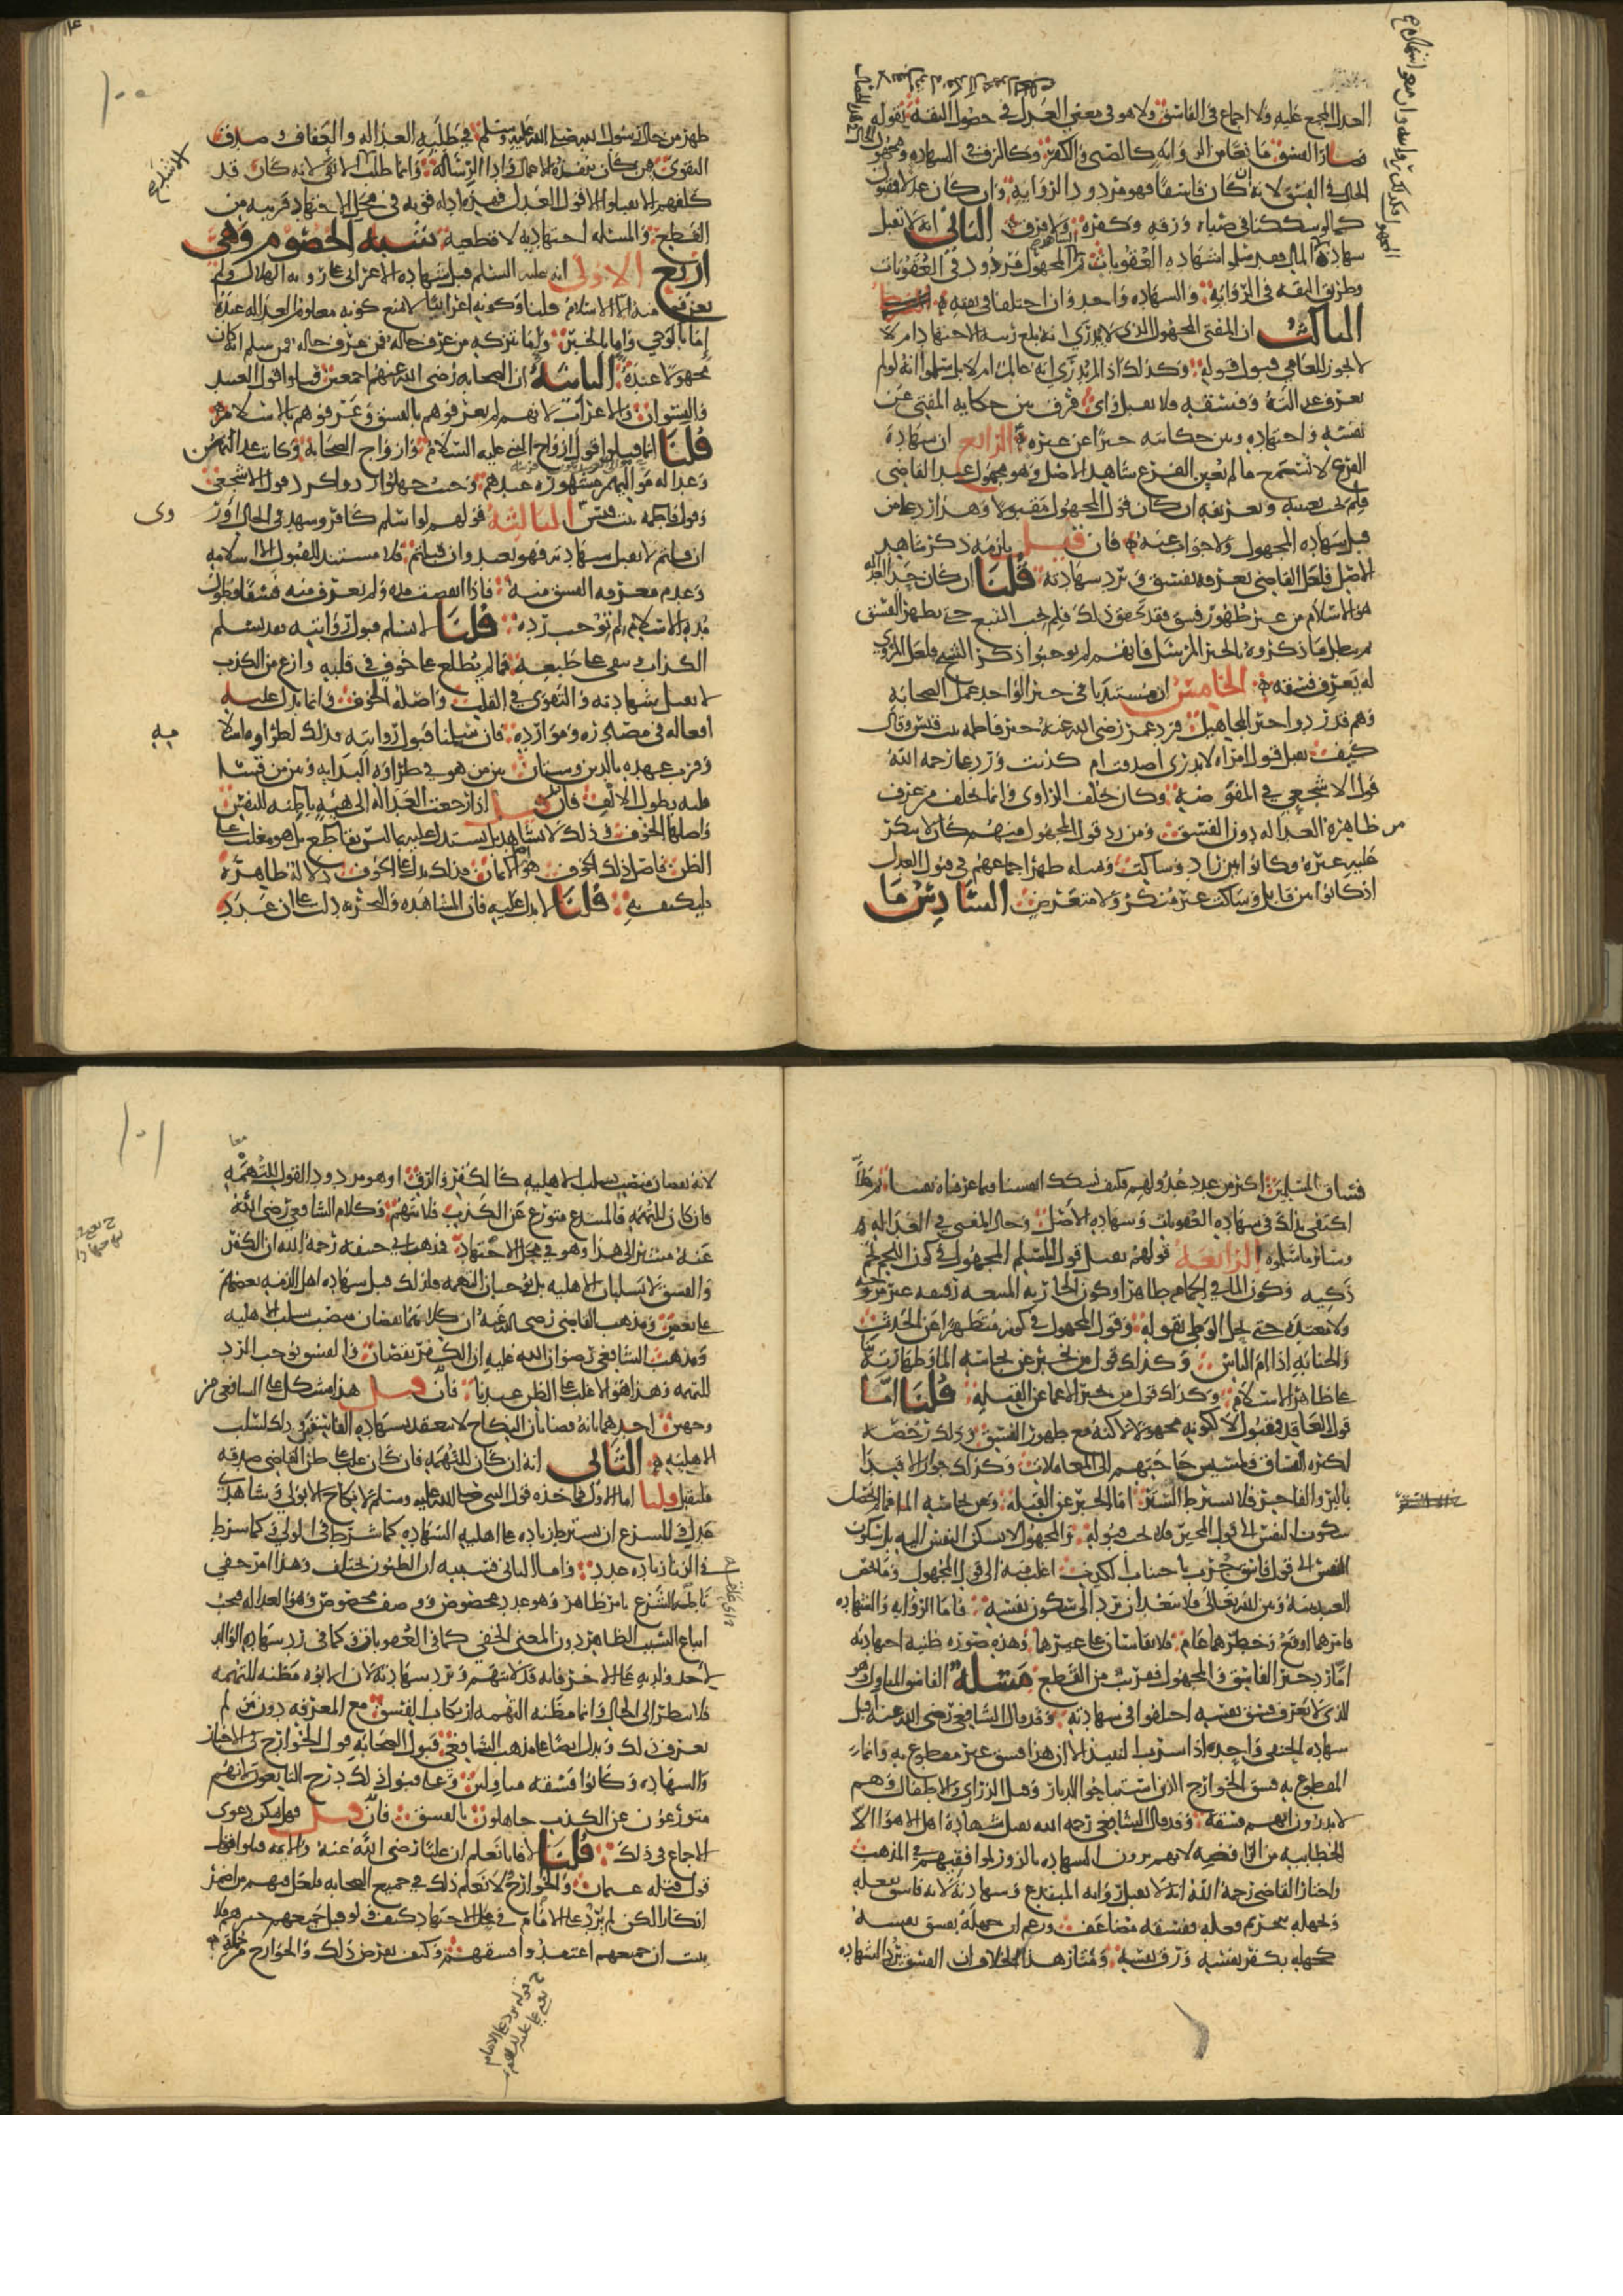 العدل المجمع عليه ولا اجماع في الفاسق ولا هو في معنى العدل في حصول الثقة بقوله
فصار الفسق مانعا من الروايه كالصبى والكفر وكالرق في الشهاده ومجهول
الحال في الفسق لانه ان كان فاسقا فهو مردود الروايه وان كان عدلا فمقبول
كما لو شككنا في صباه ورقه وكفره ولا فرق الثانى انه لا تقبل
شهادة المال فقد سلموا شهادة العقوبات ثم المجهول مردود في العقوبات
وطريق الثقه في الروايه والشهاده واحد وان اختلفا في بقيه
الثالث ان المفتى المجهول الذى لا يدرى انه بلغ رتبه الاجتهاد ام لا
لا يجوز للعامى قبول قوله وكذلك اذا لم يدرى انه عالم ام لا بل سلموا انه لو لم
يعرف عدالته وفسقه فلا يقبل واى فرق بين حكايه المفتى عن
نفسه واجتهاده وبين حكايته خبرا عن غيره الرابع ان شهادة
الفرع لا تسمع ما لم يعين الفرع شاهد الاصل وهو مجهول عند القاضى
فلم يجب تعيينه وتعريفه ان كان قول المجهول مقبولا وهذا رد على من
قبل شهاده المجهول ولا جواب عنه فان قيل يلزمه ذكر شاهد
الاصل فلعل القاضى يعرفه بفسق فيرد شهادته قلنا ان كان حد العداله
هو الاسلام من غير ظهور فسق فقد تحقق ذلك فلم يجب التتبع حتى يظهر الفسق
ثم يبطل ما ذكروه بالخبر المرسل فانهم لم يوجبوا ذكر الشيخ ولعل المروى
له يعرف فسقه الخامس ان مستندنا في خبر الواحد عمل الصحابه
وهم قد ردوا خبر المجاهيل فرد عمر رضى الله عنه خبر فاطمه بنت قيس وقال
كيف نقبل قول امراه لا ندرى أصدقت ام كذبت ورد على رحمه الله
قول الاشجعى في المفوضه وكان يحلف الراوى وانما يحلف من عرف
من ظاهره العداله دون الفسق ومن رد قول المجهول منهم كان لا ينكر
عليه غيره وكانوا بين راد وساكت وبمثله ظهر اجماعهم في قبول العدل
اذ كانوا بين قابل وساكت غير منكر ولا معترض السادس ما
١٠٠
ظهر من حال رسول الله صلى الله عليه وسلم في طلبه العداله والعفاف وصدق
التقوى ممن كان ينفذه للاعمال واداء الرساله وانما طلب الاتقى لانه كان قد
كلفهم ان لا يقبلوا الا قول العدل فهذه ادله قويه في محل الاجتهاد قريبه من
القطع والمسئله اجتهاديه لا قطعيه شبه الخصوم وهى
اربع الاولى انه عليه السلم قبل شهاده الاعرابى على رويه الهلال ولم
يعرف منه الا الاسلام قلنا وكونه اعرابيا لا يمنع كونه معلوم العداله عنده
اما بالوحى واما بالخبره واما بتزكيه من عرف حاله فمن سلم انه كان
مجهولا عنده الثانيه ان الصحابه رضى الله عنهم اجمعين قبلوا قول العبيد
والنسوان والاعراب لانهم لم يعرفوهم بالفسق وعرفوهم بالاسلام
قلنا انما قبلوا قول ازواج النبى عليه السلام وازواج الصحابه وكانت عدالتهن
وعداله مواليهم مشهوره عندهم وحيث جهلوا ردوا كرد قول الاشجعى
وقول فاطمه بنت قيس الثالثه قولهم لو اسلم كافر وشهد في الحال
ان قلتم لا تقبل شهادته فهو بعيد وان قبلتم فلا مستند للقبول الا اسلامه
وعدم معرفه الفسق منه فاذا انقضت مده ولم يعرف منه فسق فطول
مده الاسلام لم توجب رده قلنا لا نسلم قبول روايته بعد اسلم
الكذاب يبقى على طبعه فما لم يطلع على خوف في قلبه وازع من الكذب
لا نقبل شهادته والتقوى في القلب واصله الخوف وانما يدل عليه
افعاله في مصادره وموارده فان سلمنا قبول روايته فذلك لطراوه اسلامه
وقرب عهده بالدين وشتان بين من هو في طراوه البدايه وبين من قسا
قلبه بطول الالف فان قيل اذا رجعت العداله الى هيئه باطنه للنفس
واصلها الخوف وذلك لا يشاهد بل يستدل عليه بما ليس بقاطع بل هو مغلب على
الظن فاصل ذلك الخوف هو الايمان فذلك يدل على الخوف دلاله ظاهره
فليكتف به قلنا لا يدل عليه فان المشاهده والتجربه دلت على ان عدد
فساق المسلمين اكثر من عدد عدولهم فكيف نشكك انفسنا فيما عرفناه يقينا ثم هلا
اكتفى بذلك في شهاده العقوبات وشهاده الاصل وحال المفتى في العداله
وسائر ما سلموه الرابعه قولهم يقبل قول المسلم المجهول في كون اللحم لحم
ذكيه وكون الماء في الحمام طاهرا وكون الجاريه المبيعه رقيقه غير مزوجه
ولا معتده حتى يحل الوطى بقوله وقول المجهول في كونه متطهرا عن الحدث
والجنابه اذا ام الناس وكذلك قول من يخبر عن نجاسه الماء وطهارته
على ظاهر الاسلام وكذلك قول من يخبر الاعمى عن القبله قلنا اما
قول العاقد فمقبول لا لكونه مجهولا لكنه مع ظهور الفسق وذلك رخصه
لكثره الفساق ولمسيس حاجتهم الى المعاملات وكذلك جواز الاقتدا
بالبر والفاجر فلا يشترط الستر اما الخبر عن القبله وعن نجاسه الماء فما لم يحصل
سكون النفس الى قول المخبر فلا يجب قبوله والمجهول لا تسكن النفس اليه بل سكون
النفس الى قول فاسق جرب باجتناب الكذب اغلب منه الى قول المجهول وما يخص
العبد بينه وبين الله تعالى فلا يبعد ان يرد الى سكون نفسه فاما الروايه والشهاده
فامرهما ارفع وخطرهما عام فلا يقاسان على غيرهما وهذه صوره ظنيه اجتهاديه
اما رد خبر الفاسق والمجهول فقريب من القطع مسئله الفاسق المتاول وهو
الذى لا يعرف فسق نفسه اختلفوا في شهادته وقد قال الشافعى رضى الله عنه اقبل
شهاده الحنفى واحده اذا شرب النبيذ لان هذا فسق غير مقطوع به وانما
المقطوع به فسق الخوارج الذين استباحوا الديار وقتل الذرارى والاطفال وهم
لا يدرون انهم فسقه وقد قال الشافعى رحمه الله تقبل شهادة اهل الاهواء الا
الخطابيه من الرافضه لانهم يرون الشهاده بالزور لموافقيهم في المذهب
واختار القاضى رحمه الله انه لا يقبل روايه المبتدع وشهادته لانه فاسق بفعله
ولجهله بتحريم فعله ففسقه مضاعف وزعم ان جهله بفسق نفسه
كجهله بكفر نفسه ورق نفسه ومثار هذا الخلاف ان الفسق يرد الشهاده
١٠١
لانه نقصان منصب يسلب الاهليه كالكفر والرق او هو مردود القول للتهمه
فان كان للتهمه فالمبتدع متورع عن الكذب فلا يتهم وكلام الشافعى رضى الله
عنه مشير الى هذا وهو في محل الاجتهاد فذهب ابى حنيفه رحمه الله ان الكفر
والفسق لا يسلبان الاهليه بل يوجبان التهمه فلذلك قبل شهاده اهل الذمه بعضهم
على بعض ومذهب القاضى رضى الله عنه ان كلاهما نقصان منصب يسلب الاهليه
ومذهب الشافعى رضوان الله عليه ان الكفر نقصان والفسق يوجب الرد
للتهمه وهذا هو الاغلب على الظن عندنا فان قيل هذا مشكل على الشافعى من
وجهين احدهما انه قضى بان النكاح لا ينعقد بشهاده الفاسقين وذلك لسلب
الاهليه الثانى انه ان كان للتهمه فان كان غلب على ظن القاضى صدقه
فليقبل قلنا اما الاول فماخذه قول النبى صلى الله عليه وسلم لا نكاح الا بولى وشاهدى
عدل وللشرع ان يشترط زياده على اهليه الشهاده كما شرط في الولى وكما شرط
في الزنا زياده عدد واما الثانى فسببه ان الظنون تختلف وهذا امر خفى
ناطه الشرع بامر ظاهر وهو عدد مخصوص ووصف مخصوص وهو العداله فيجب
اتباع السبب الظاهر دون المعنى الخفى كما في العقوبات وكما في رد شهاده الوالد
لاحد ولديه على الاخر فانه قد لا يتهم وترد شهادته لان الابوه مظنه للتهمه
فلا ينظر الى الحال وانما مظنه التهمه ارتكاب الفسق مع المعرفه دون من لم
يعرف ذلك ويدل ايضا على مذهب الشافعى قبول الصحابه قول الخوارج في الاخبار
والشهاده وكانوا فسقه متاولين وعلى قبول ذلك درج التابعون لانهم
متورعون عن الكذب جاهلون بالفسق فان قيل فهل يمكن دعوى
الاجماع في ذلك قلنا لا فانا نعلم ان عليا رضى الله عنه والائمه قبلوا
قول قتله عثمان والخوارج لا نعلم ذلك في جميع الصحابه فلعل فيهم من اضمر
انكارا لكن لم يرد على الامام في محل الاجتهاد كيف ولو قبل جميعهم خبرهم فلا
يثبت ان جميعهم اعتقدوا فسقهم وكيف يفرض ذلك والخوارج من جمله